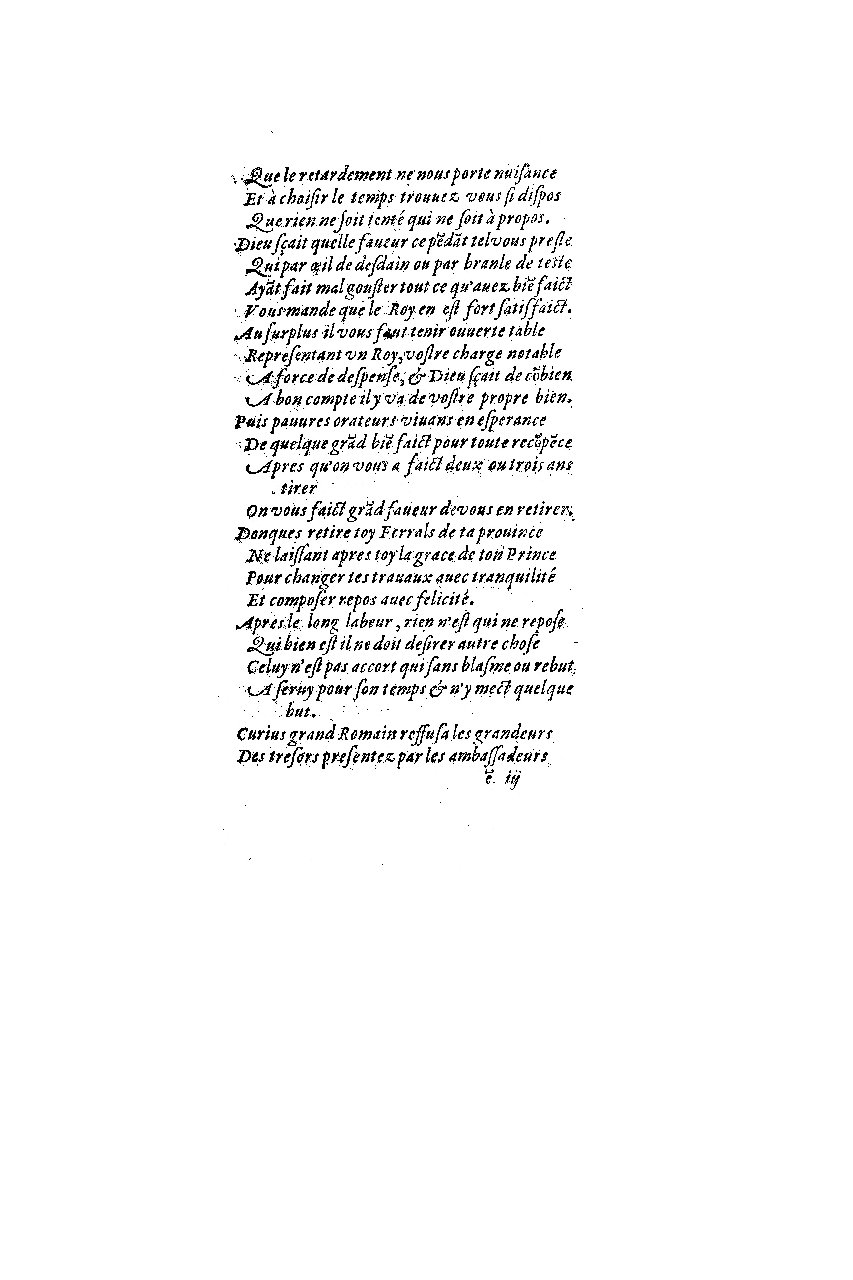 Que le retardement ne nous porte nuiſance
Et à choiſir le temps trouuez vous ſi diſpos
Que rien ne ſoit tenté qui ne ſoit à propos.
Dieu ſçait quelle faueur cepẽdãt tel vous preſte
Qui par œil de deſdain ou par branle de teste
Ayãt fait mal gouſter tout ce qu'auez biẽ faict
Vous mande que le Roy en eſt fort ſatiſfaict.
Au ſurplus il vous faut tenir ouuerte table
Repreſentant vn Roy, voſtre charge notable
A force de deſpenſe, & Dieu ſçait de cõbien
A bon compte il y va de voſtre propre bien.
Puis pauures orateurs viuans en eſperance
De quelque grãd biẽ faict pour toute recõpẽce
Apres qu'on vous a faict deux ou trois ans
tirer
On vous faict grãd faueur de vous en retirer.
Donques retire toy Ferrals de ta prouince
Ne laiſſant apres toy la grace de ton Prince
Pour changer tes trauaux auec tranquilité
Et compoſer repos auec felicité.
Apres le long labeur, rien n'eſt qui ne repoſe
Qui bien eſt il ne doit deſirer autre choſe
Celuy n'eſt pas accort qui ſans blaſme ou rebut
A ſeruy pour ſon temps & n'y mect quelque
but.
Curius grand Romain reffuſa les grandeurs
Des treſors preſentez par les ambaſſadeurs
e iij